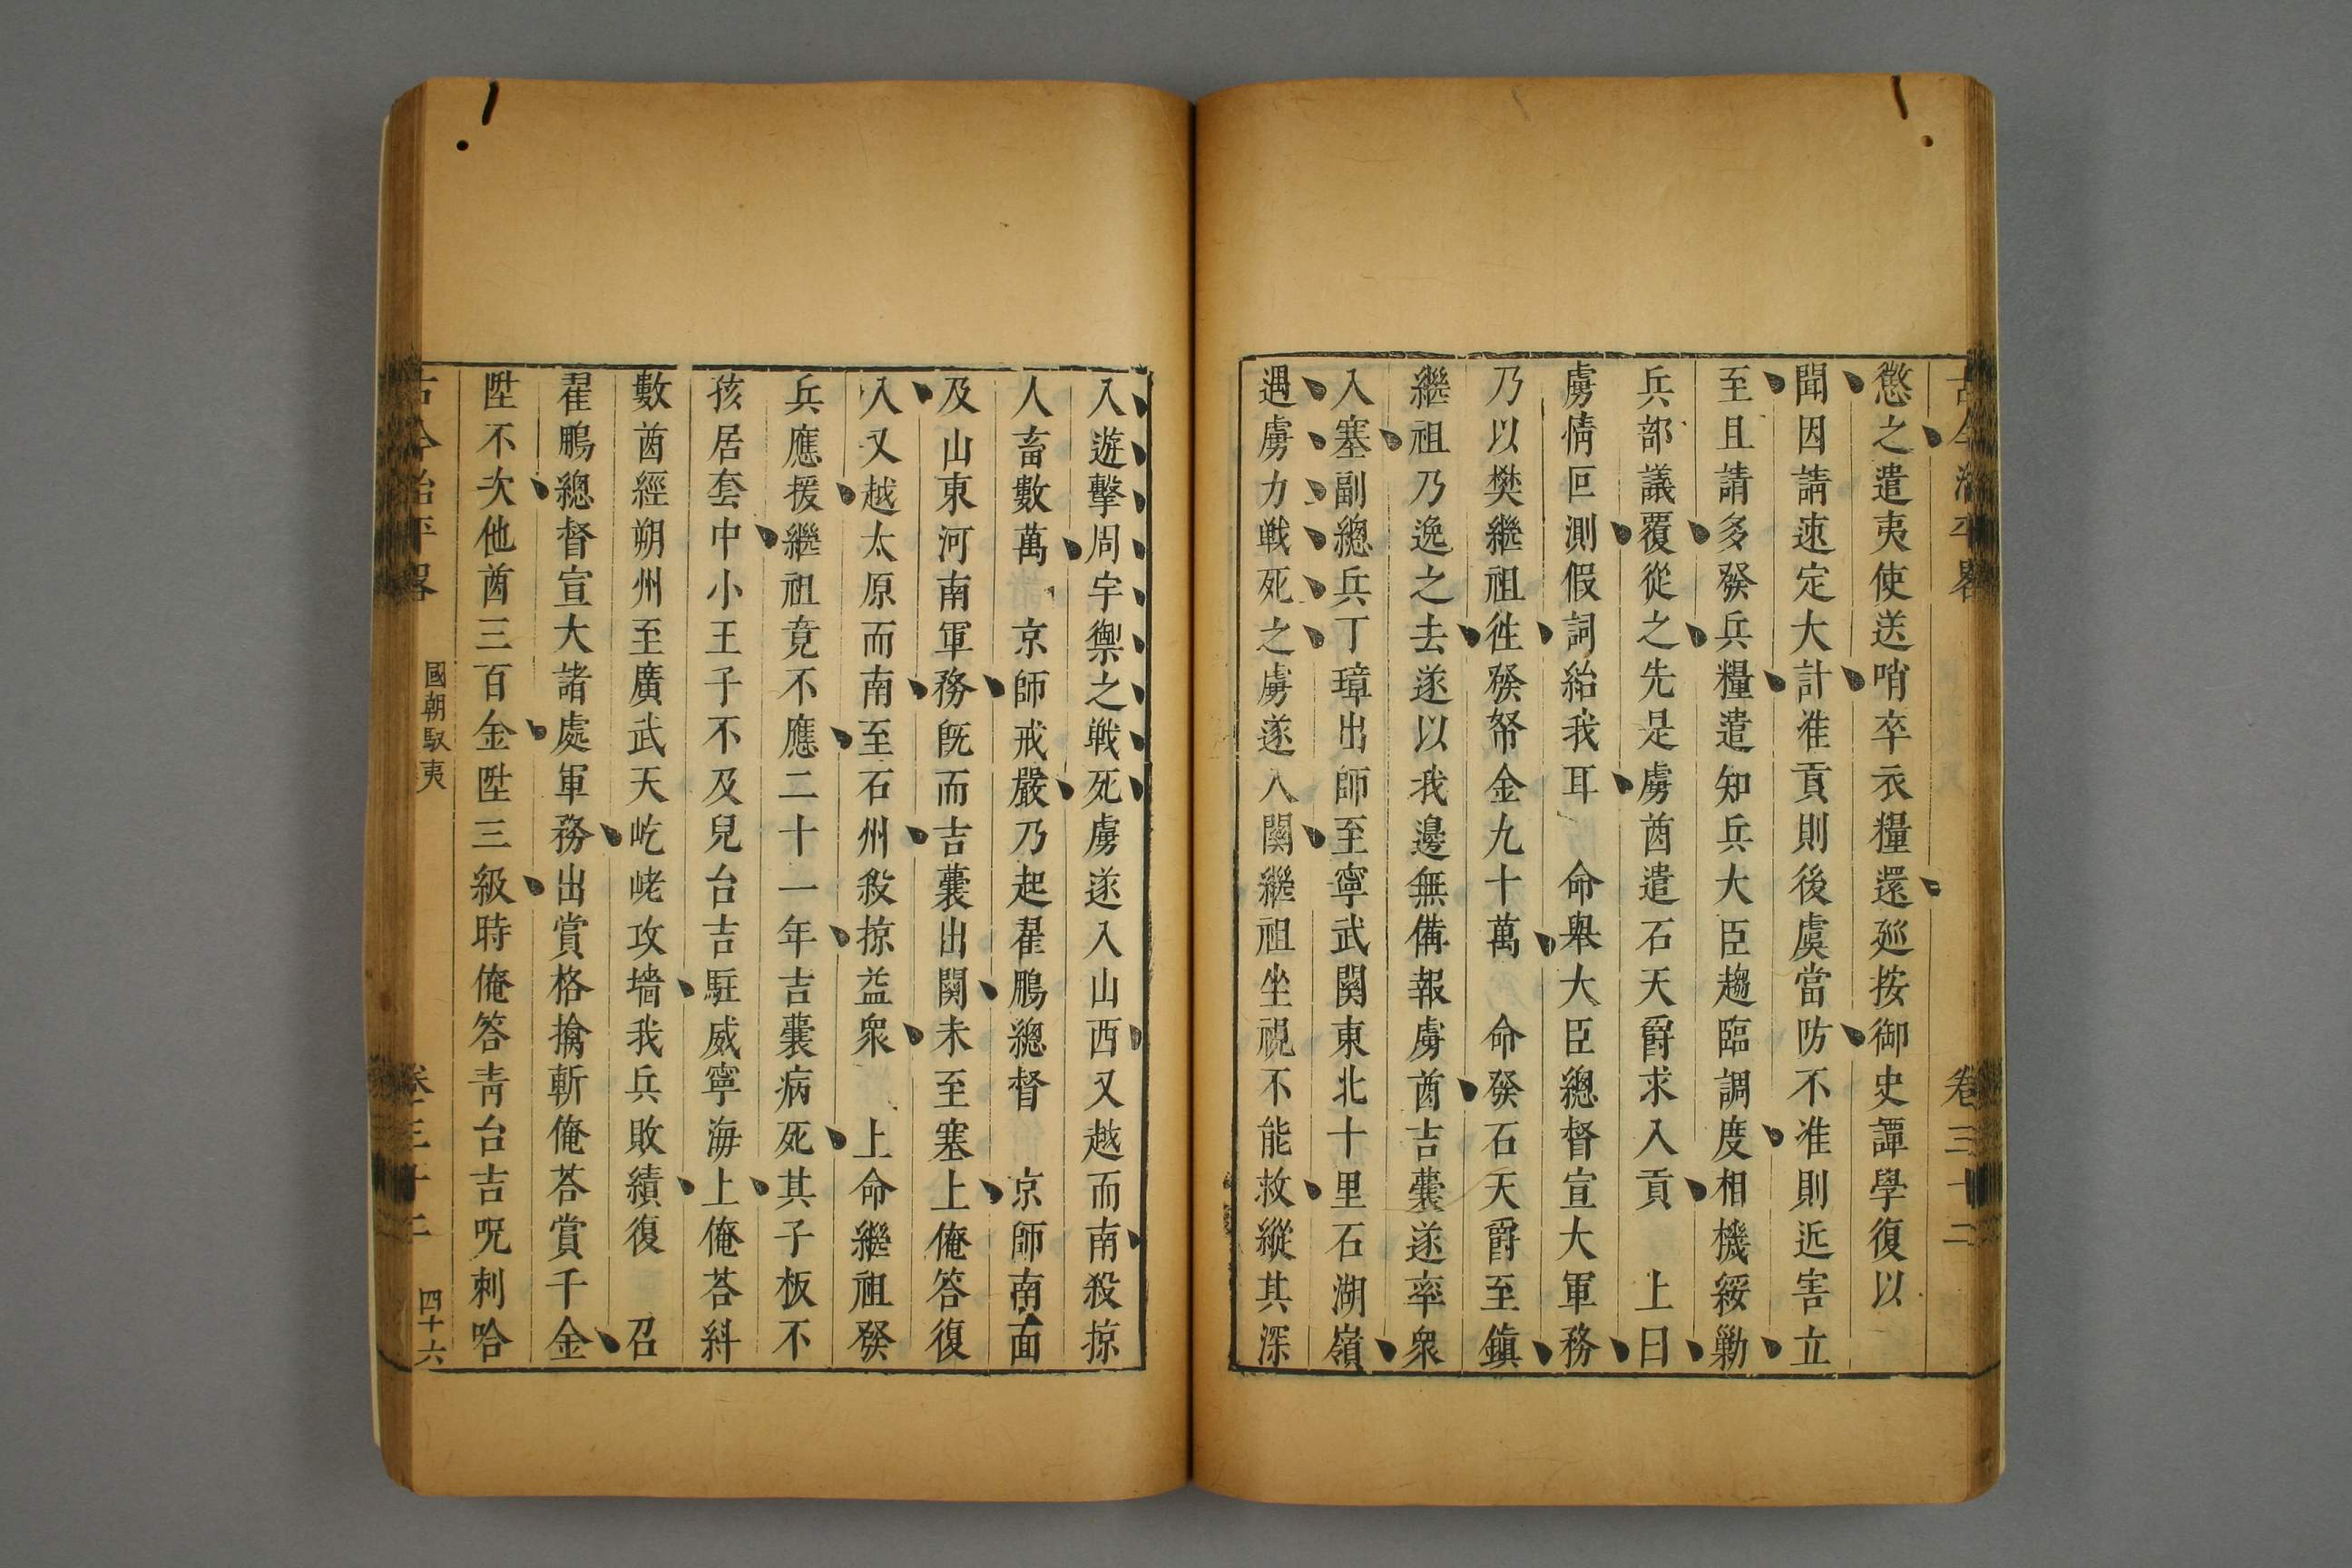 古今治平畧 卷三十二
慾之遣夷使送哨卒衣糧還廵按御史譚學復以
聞因請速定大計准貢則後虞當防不准則近害立
至且請多發兵糧遣知兵大臣趨臨調度相機綏勦
兵部議覆從之先是虜酋遣石天爵求入貢 上曰
虜情叵測假詞紿我耳 命舉大臣總督宣大軍務
乃以樊繼祖徃發帑金九十萬 命發石天爵至鎮
繼祖乃逸之去遂以我邊無備報虜酋吉囊遂率衆
入塞副總兵丁璋出師至寧武關東北十里石湖嶺
遇虜力戰死之虜遂入關繼祖坐視不能救縱其深
入遊擊周宇禦之戰死虜遂入山西又越而南殺掠
人畜數萬 京師戒嚴乃起翟鵬總督 京師南面
及山東河南軍務旣而吉囊出關未至塞上俺答復
入又越太原而南至石州殺掠益衆 上命繼祖發
兵應援繼祖竟不應二十一年吉囊病死其子板不
孩居套中小王子不及兒台吉駐威寧海上俺荅糾
數酋經朔州至廣武天屹峔攻墻我兵敗績復 召
翟鵬總督宣大諸處軍務出賞格擒斬俺荅賞千金
陞不次他酋三百金陞三級時俺答青台吉呪刺哈
古今治平畧 國朝馭夷 卷三十二 四十六